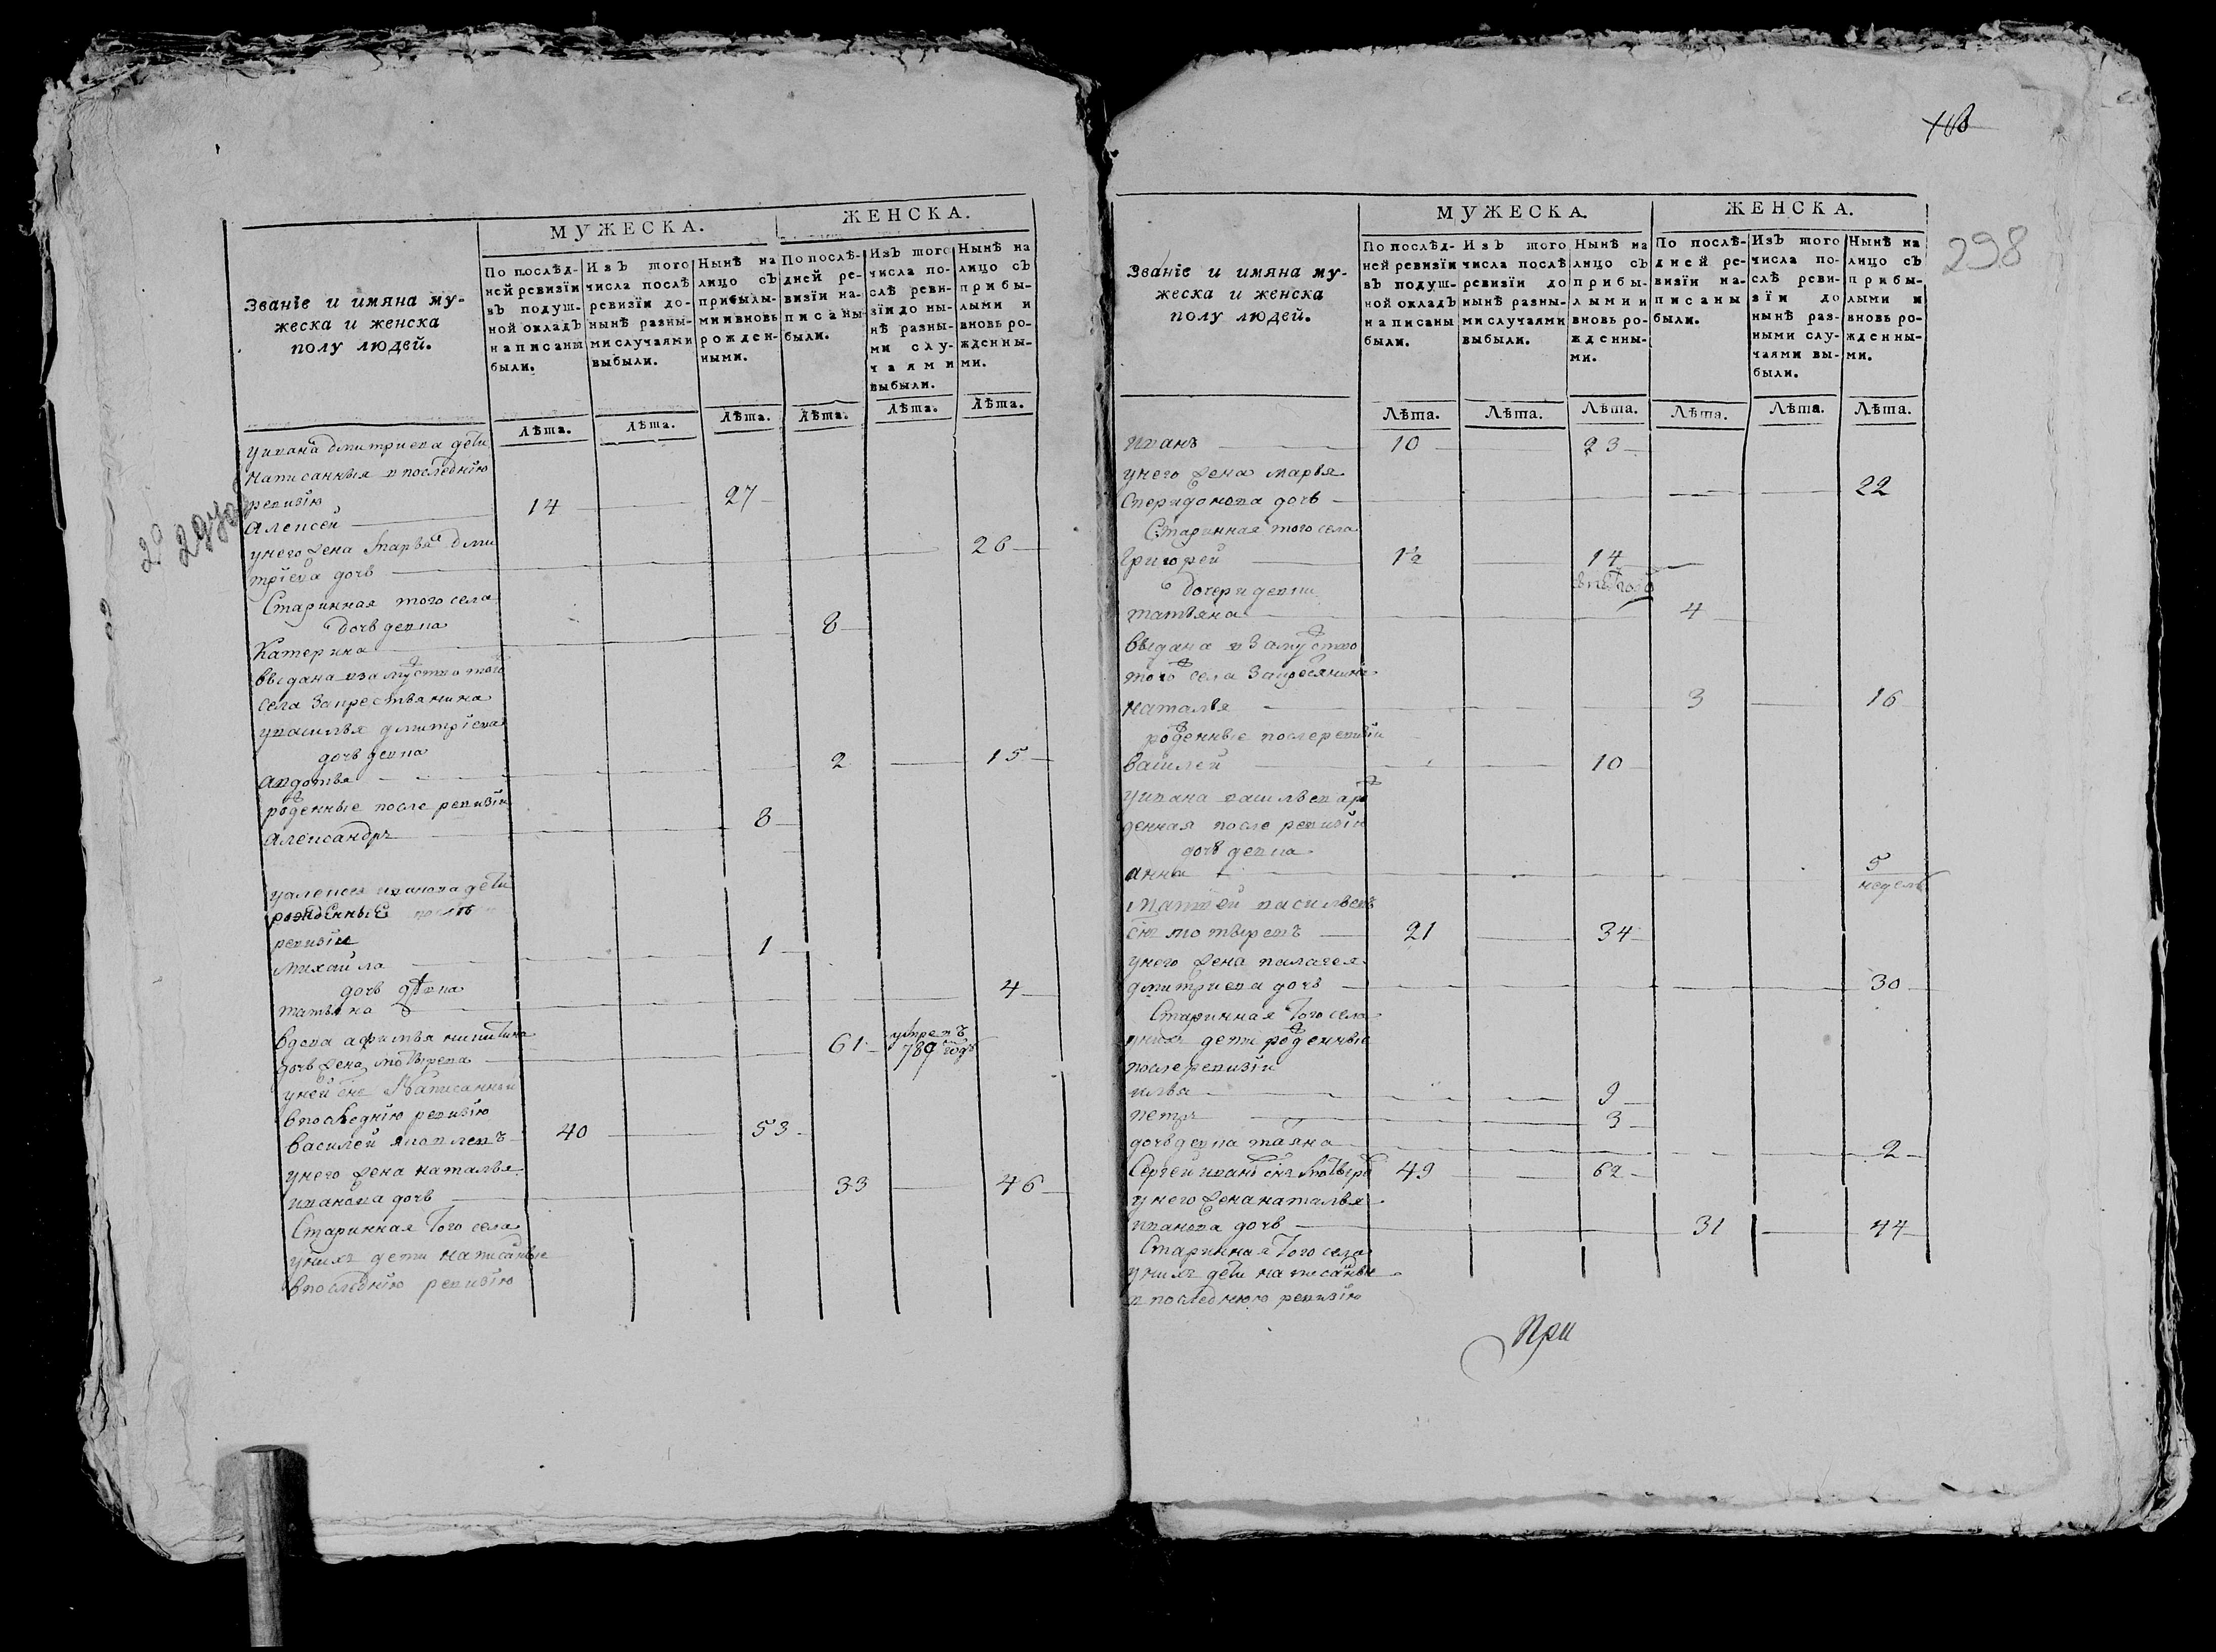 МУЖЕСКА.
ЖЕНСКА.
Званіе и имяна му-
жеска и женска
полу людей.
По послѣд-
ней ревизіи
въ подуш-
ной окладъ
написаны
были.
Изъ того
числа послѣ
ревизіи до-
нынѣ разны-
ми случаями
выбыли.
Нынѣ на
лицо съ
прибылы-
ми и вновь
рожден-
ными.
По послѣ-
дней ре-
визіи на-
писаны
были.
Изъ того
числа по-
слѣ реви-
зіи до ны-
нѣ разны-
ми слу-
чаями
выбыли.
Нынѣ на
лицо съ
прибы-
лыми и
вновь ро-
жденны-
ми.
Лѣта. Лѣта. Лѣта. Лѣта. Лѣта. Лѣта.
уивана дмитриева дети
написанныя в последнїю
ревизїю
алексей 14 27
унего жена марья дми
трїева дочь 26
Старинная того села
дочь девка
Катерина 8
выдана взамужство того
села за крестьянина
увасилья дмитрїева
дочь девка
авдотья 2 15
рожденные после ревизїи
александръ 8
уалексея иванова дети
рожденные после
ревизїи
михайла 1
дочь девка
татьяна 4
вдова афимья никитина
дочь жена 61 умре въ 789 годе
уней снъ написанной
впоследнїю ревизїю
василей яковлевъ 40 53
унего жена наталья
иванова дочь 33 46
Старинная того села
унихъ дети написанные
впоследнїю ревизїю
298
МУЖЕСКА.
ЖЕНСКА.
Званіе и имяна му-
жеска и женска
полу людей.
По послѣд-
ней ревизіи
въ подуш-
ной окладъ
написаны
были.
Изъ того
числа послѣ
ревизіи до
нынѣ разны-
ми случаями
выбыли.
Нынѣ на
лицо съ
прибы-
лыми и
вновь ро-
жденны-
ми.
По послѣ-
дней ре-
визіи на-
писаны
были.
Изъ того
числа по-
слѣ реви-
зіи до
нынѣ раз-
ными слу-
чаями вы-
были.
Нынѣ на
лицо съ
прибы-
лыми и
вновь ро-
жденны-
ми.
Лѣта. Лѣта. Лѣта. Лѣта. Лѣта. Лѣта.
иванъ 10 23
унего жена марья
Спиридонова дочь 22
Старинная того села
григорей 1½ 14
дочери девки
татьяна 4
выдана взамужство
того села закресянина
наталья 3 16
рожденные послеревизїи
василей 10
уивана васильева рож
денная после ревизїи
дочь девка
анна 5 недель
матвей васильевъ
снъ 21 34
унего жена палагея
дмитриева дочь 30
Старинная того села
унихъ дети рожденные
после ревизїи
илья 9
петръ 3
дочь девка таяна 2
Сергей иванъ снъ 49 62
унего жена наталья
иванова дочь 31 44
Старинная того села
унихъ дети написанные
в последнюю ревизїю
При